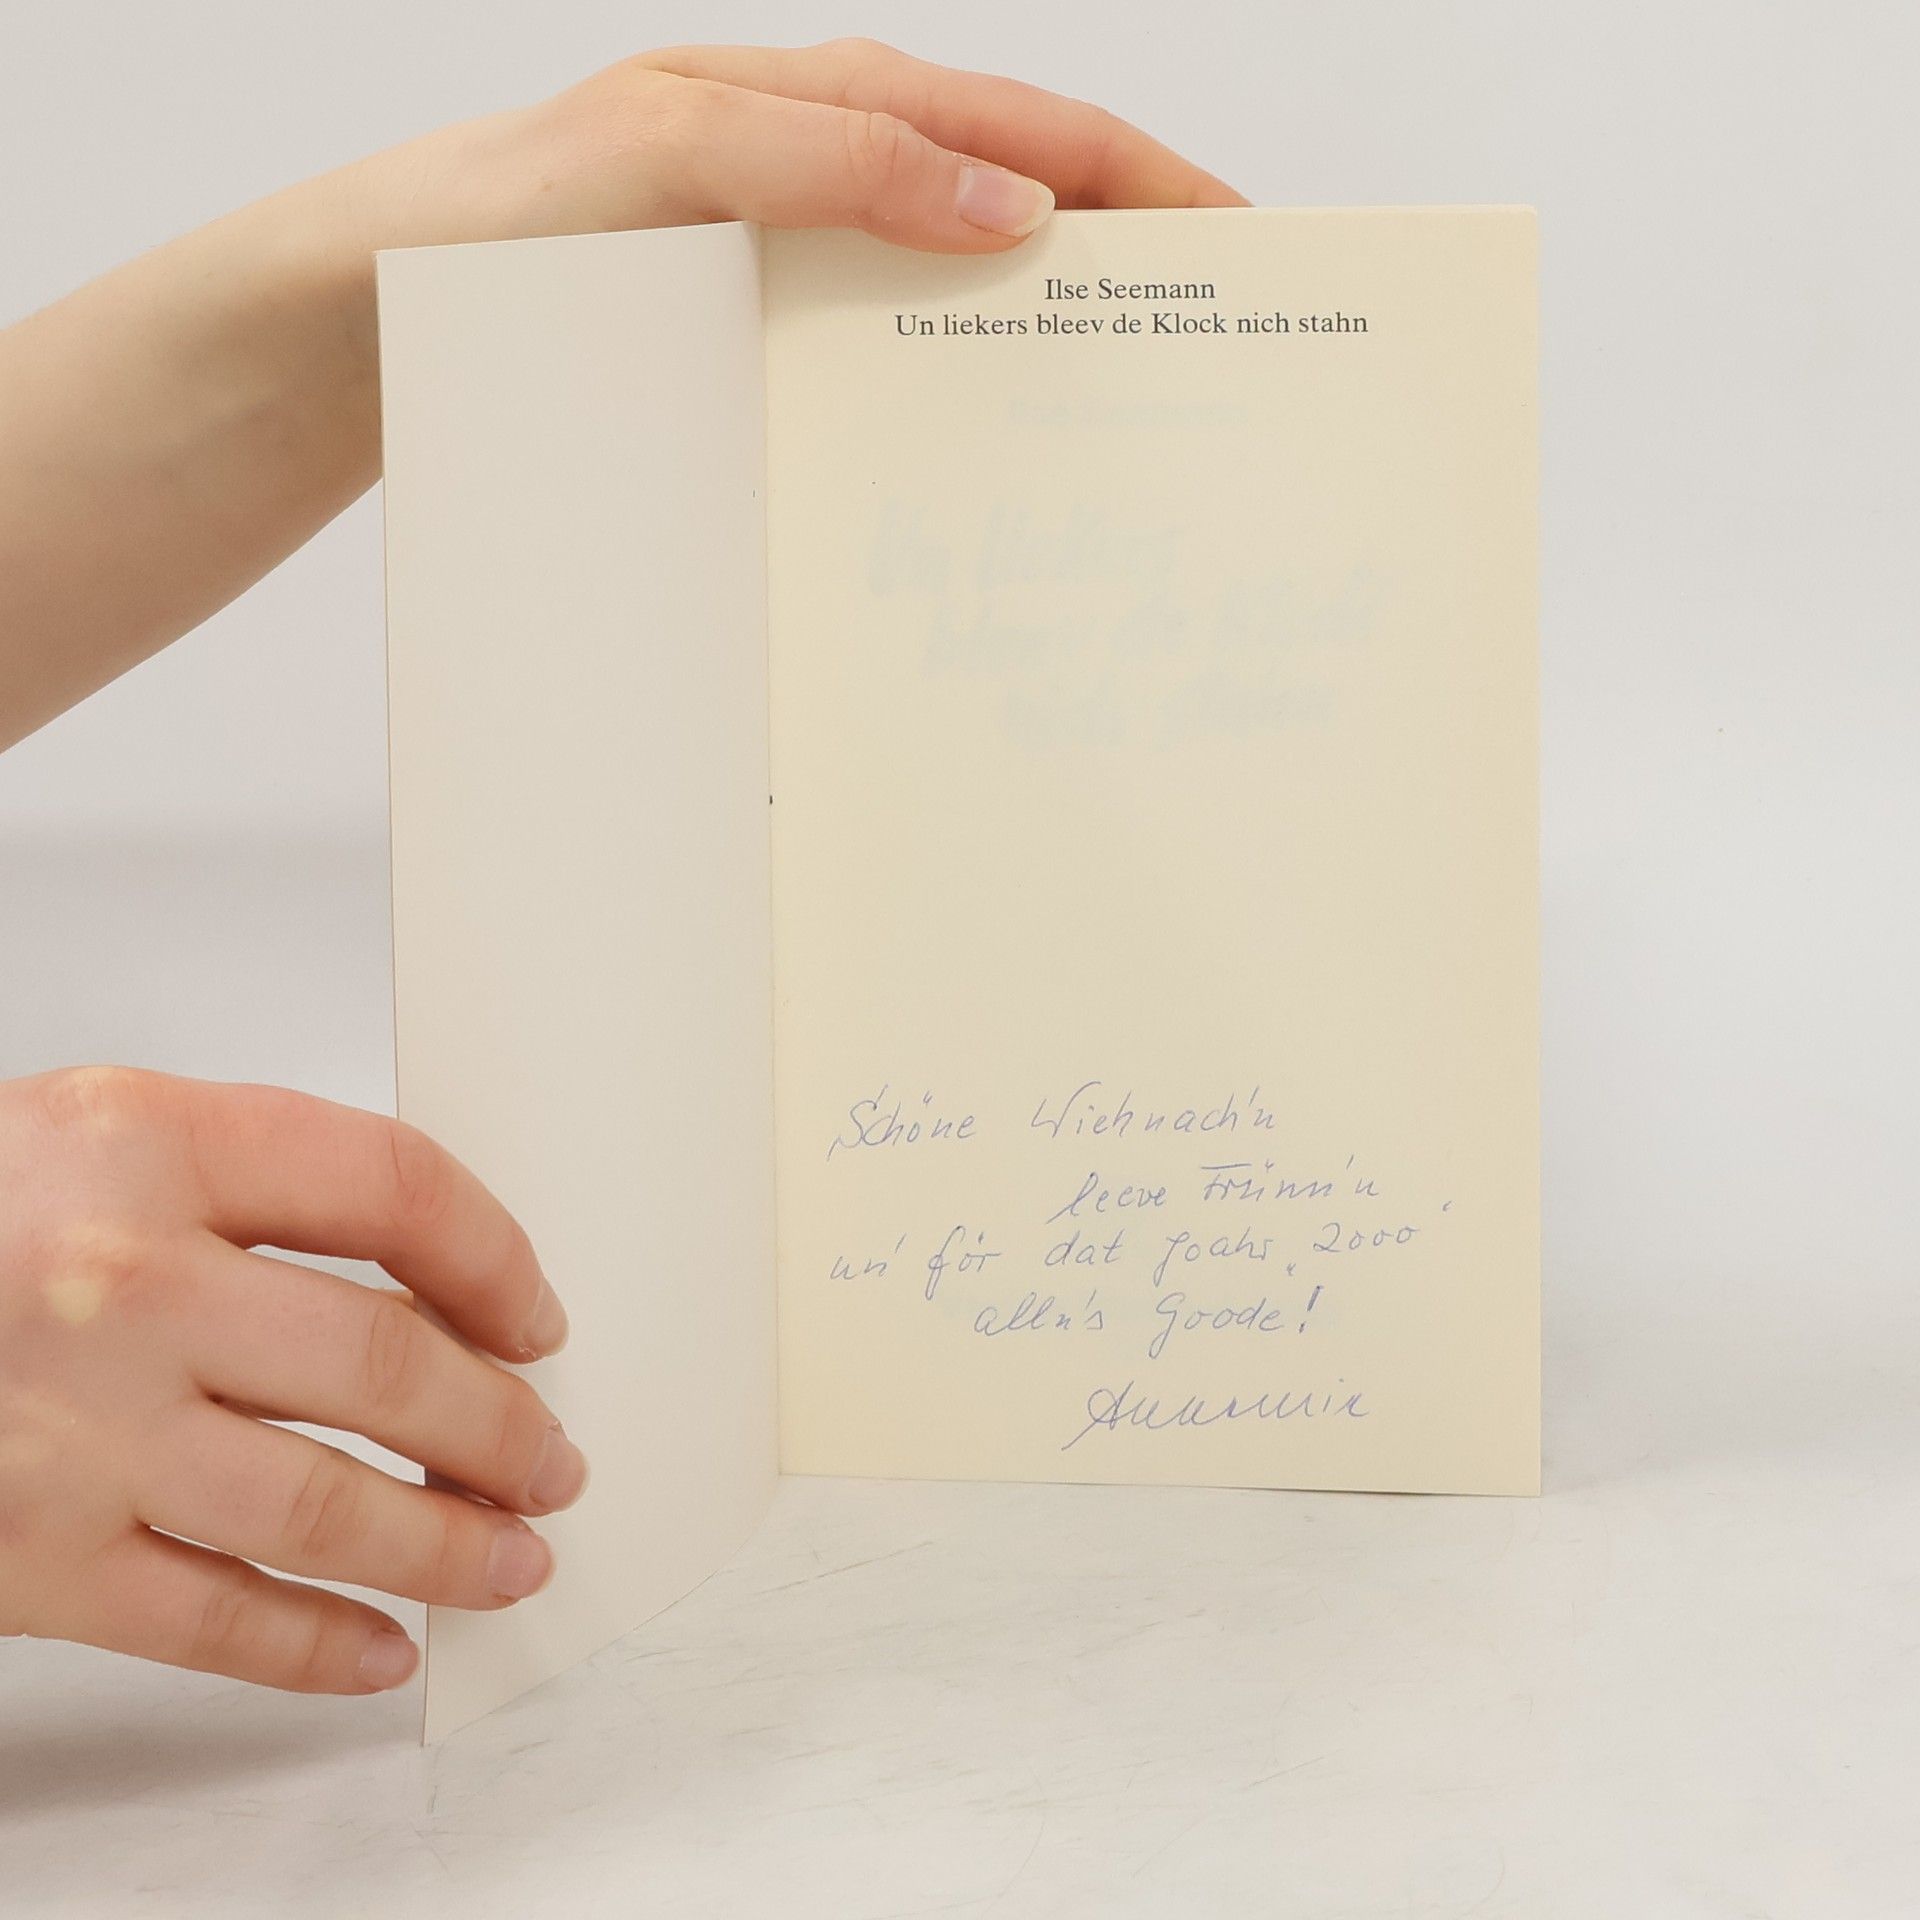 Ilse Seemann
Un liekers bleev de Klock nich stahn
Schöne Wiehnach'n
leeve Frünn'n
un' för dat Joahr „2000“
alln's Goode!